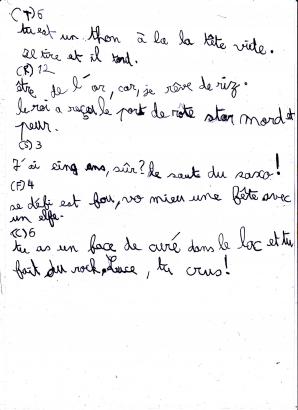 (T) 6
tu est un thon à la la tête vide.
Il tire et il tord.
(R) 12
être de l'or, car, je rêve de riz.
le roi a reçu le port de rote star mord et
peur.
(S) 3
J'ai cinq ans, sûr? le saute du saxo!
(F) 4
se défi est fou, vo mieu une fête avec
un elfe.
(C) 6
tu as un face de curé dans le lac et tu
fait du rock, Luce, tu crus!